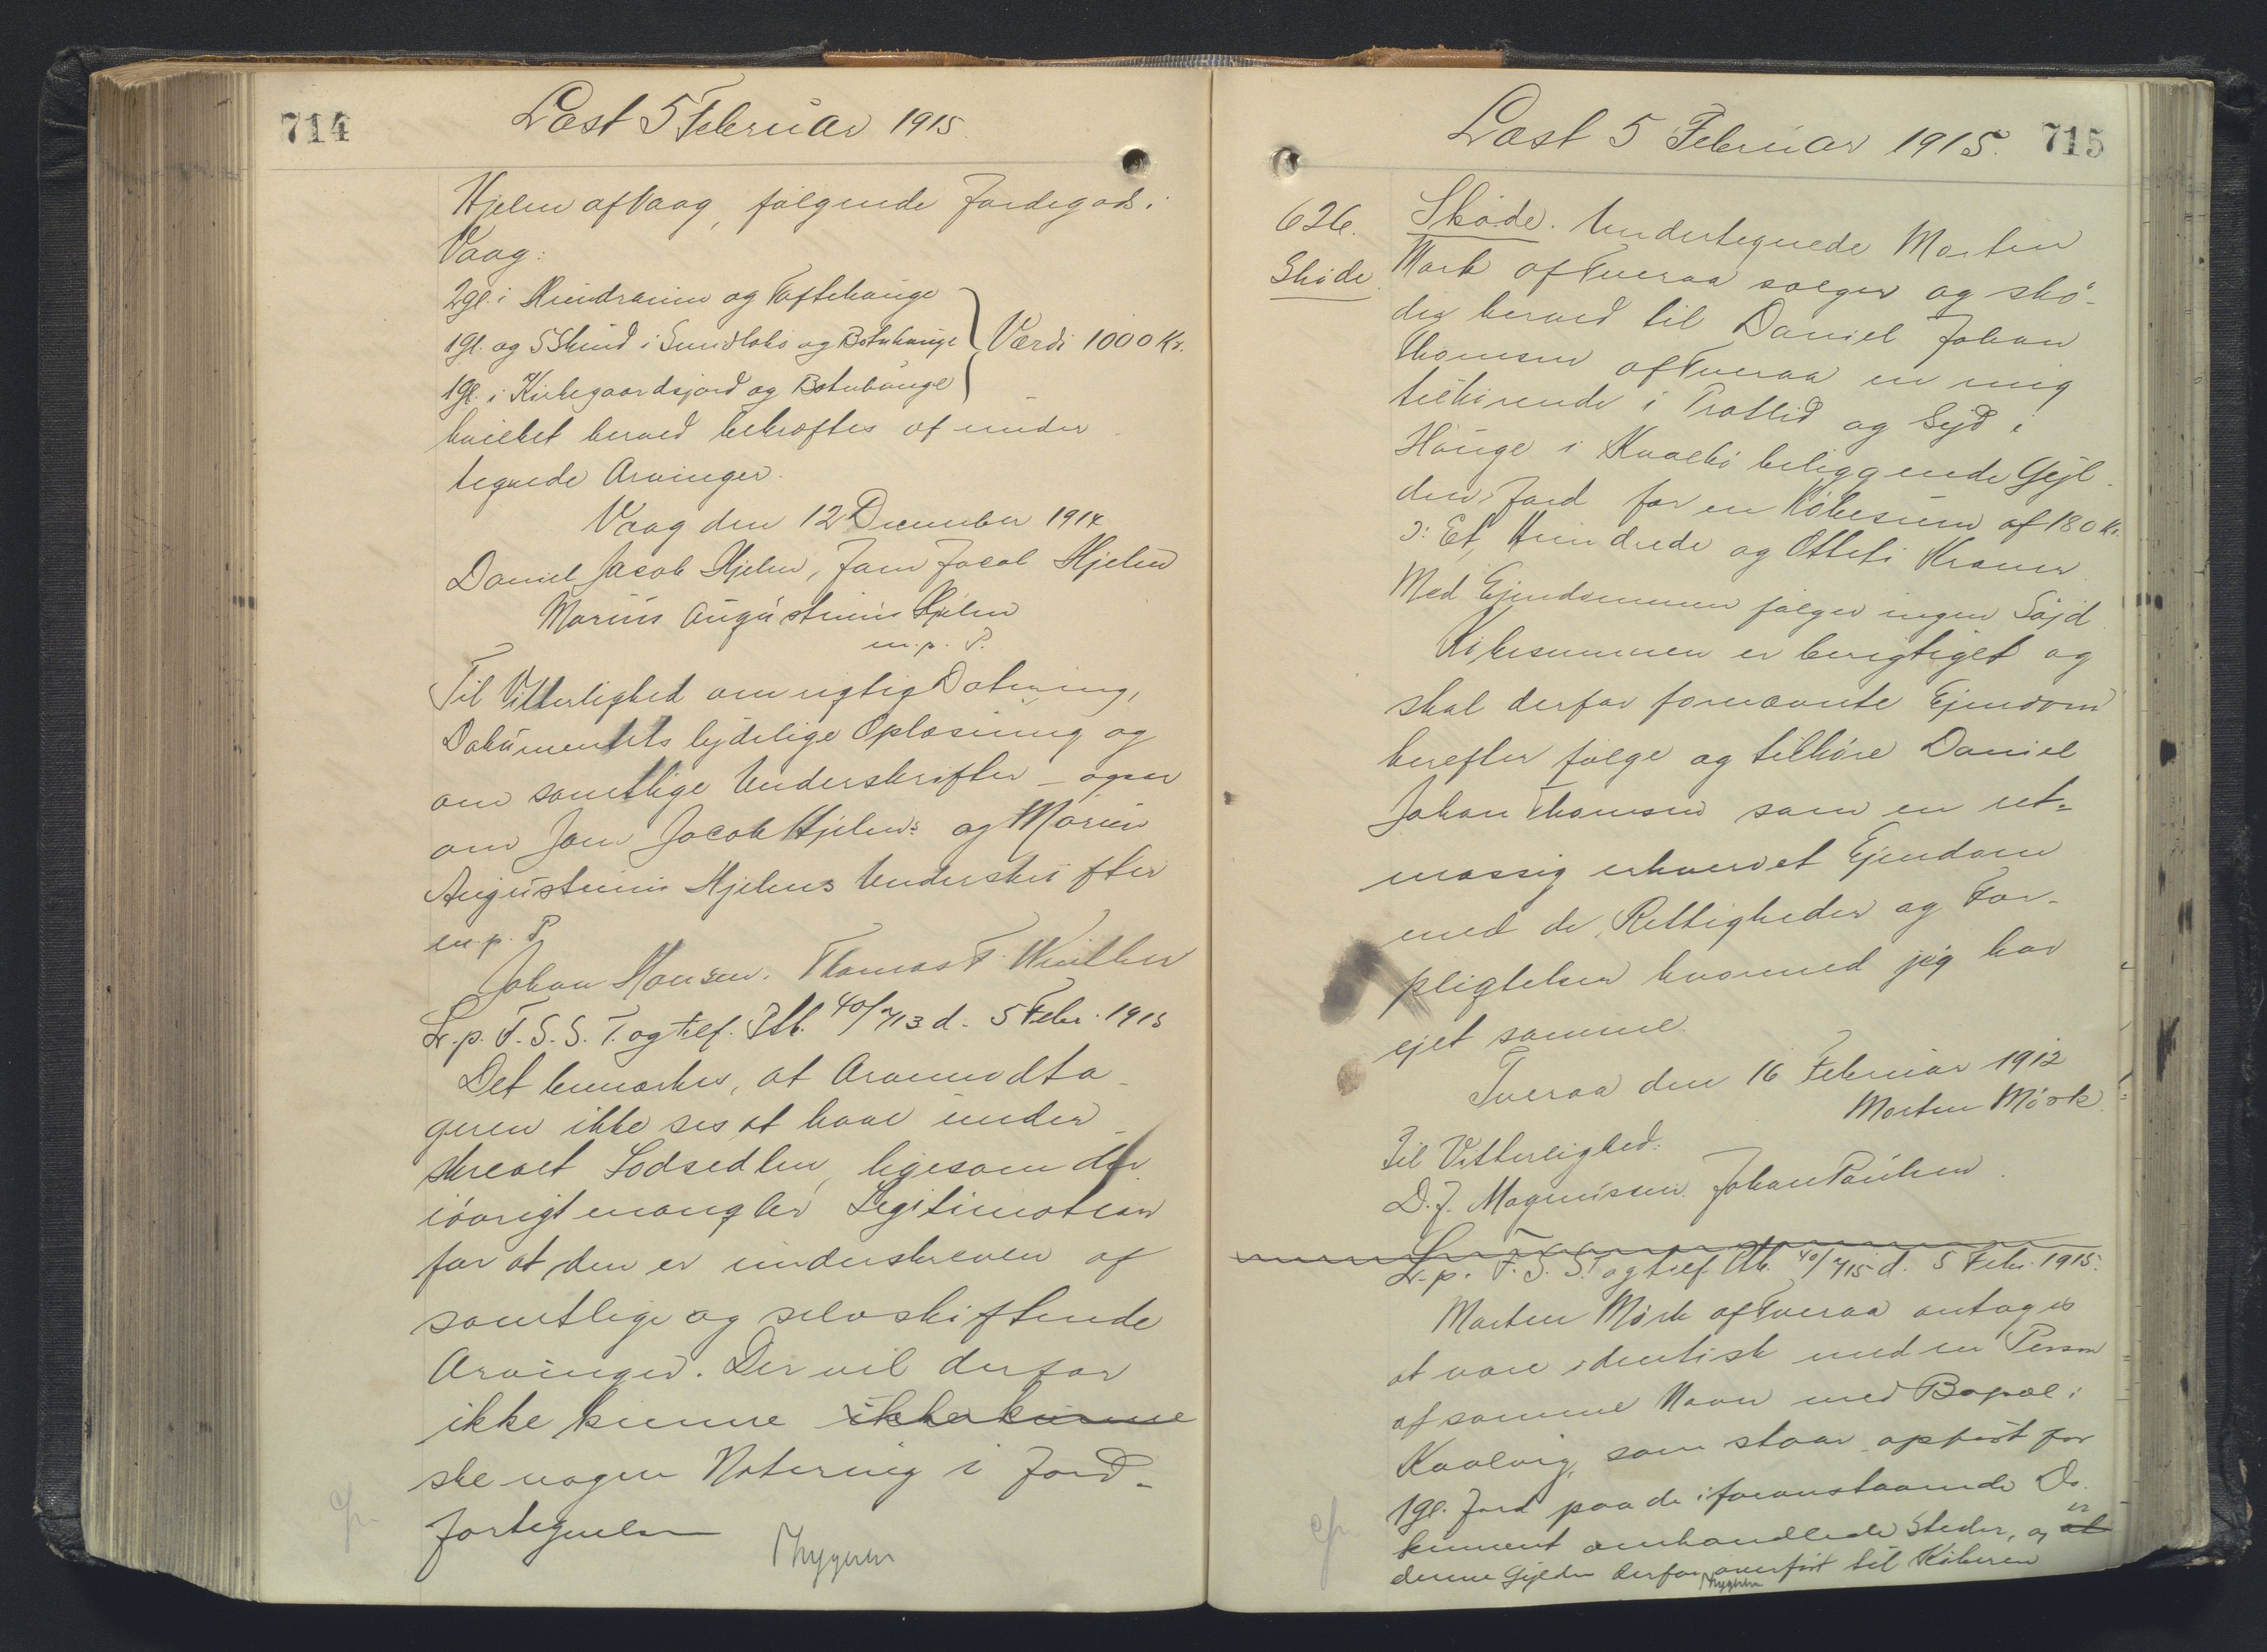 714
Læst 5 Februar 1915.
Hjelm af Vaag, følgende Jordegods i
Vaag:
2 gl. i og Toftehauge
1 gl. og 5 Skind i og Botnhauge
1 gl. i Kirkegaardsjord og Botnhauge
Værdi 1000 Kr.
hvilket herved bekræftes af under
tegnede Arvinger.
Vaag den 12 December 1914
Daniel Jacob Hjelm, Jens Jacob Hjelm
Marius Augustinus Hjelm
m. p. P.
Til Vitterlighed om rigtig Datering,
Dokumentets lydelige Oplæsning og
om samtlige Underskrifter – ogsaa
om Jens Jacob Hjelms og Marius
Augustinus Hjelms Underskrifter
m. p. P.
Johan Hansen. Thomas F. Winther
Lr. p. F. S. S. T. og tilf. Ptb. 40/713 d. 5 Febr. 1915
Det bemærkes, at Arvemodta-
geren ikke ses at have under-
skrevet Lodsedlen, ligesom der
iøvrigt mangler Legitimation
for at den er underskreven af
samtlige og selvskiftende
Arvinger. Der vil derfor
ikke kunne ikke kunne
ske nogen Notering i Jord-
fortegnelsen
Thygesen
715
Læst 5 Februar 1915.
626.
Skøde.
Skøde. Undertegnede Morten
Mørk af Tveraa sælger og skø-
der herved til Daniel Johan
Thomsen af Tveraa en mig
tilhørende i Trøllid og Syd i
Hauge i Kvalbø beliggende Gyl-
den Jord for en Købesum af 180 Kr.
ɔ: Et Hundrede og Otteti Kroner.
Med Ejendommen følger ingen Sojd.
Købesummen er berigtiget og
skal derfor fornævnte Ejendom
herefter følge og tilhøre Daniel
Johan Thomsen som en ret-
mæssig erhvervet Ejendom
med de Rettigheder og For-
pligtelser hvormed jeg har
ejet samme.
Tveraa den 16 Februar 1912
Morten Mörk.
Til Vitterlighed:
D. J. Magnussen. Johan Paulsen.
Lr. p. F. S. S. T. og tilf. Ptb. 40/715 d. 5 Febr. 1915.
Morten Mørk af Tveraa antages
at være identisk med en Person
af samme Navn med Bopæl i
som staar opført for
1 gl. Jord paa de i foranstaaende Do-
kument omhandlede Steder, og at er
denne Gylden derfor overført til Køberen
Thygesen